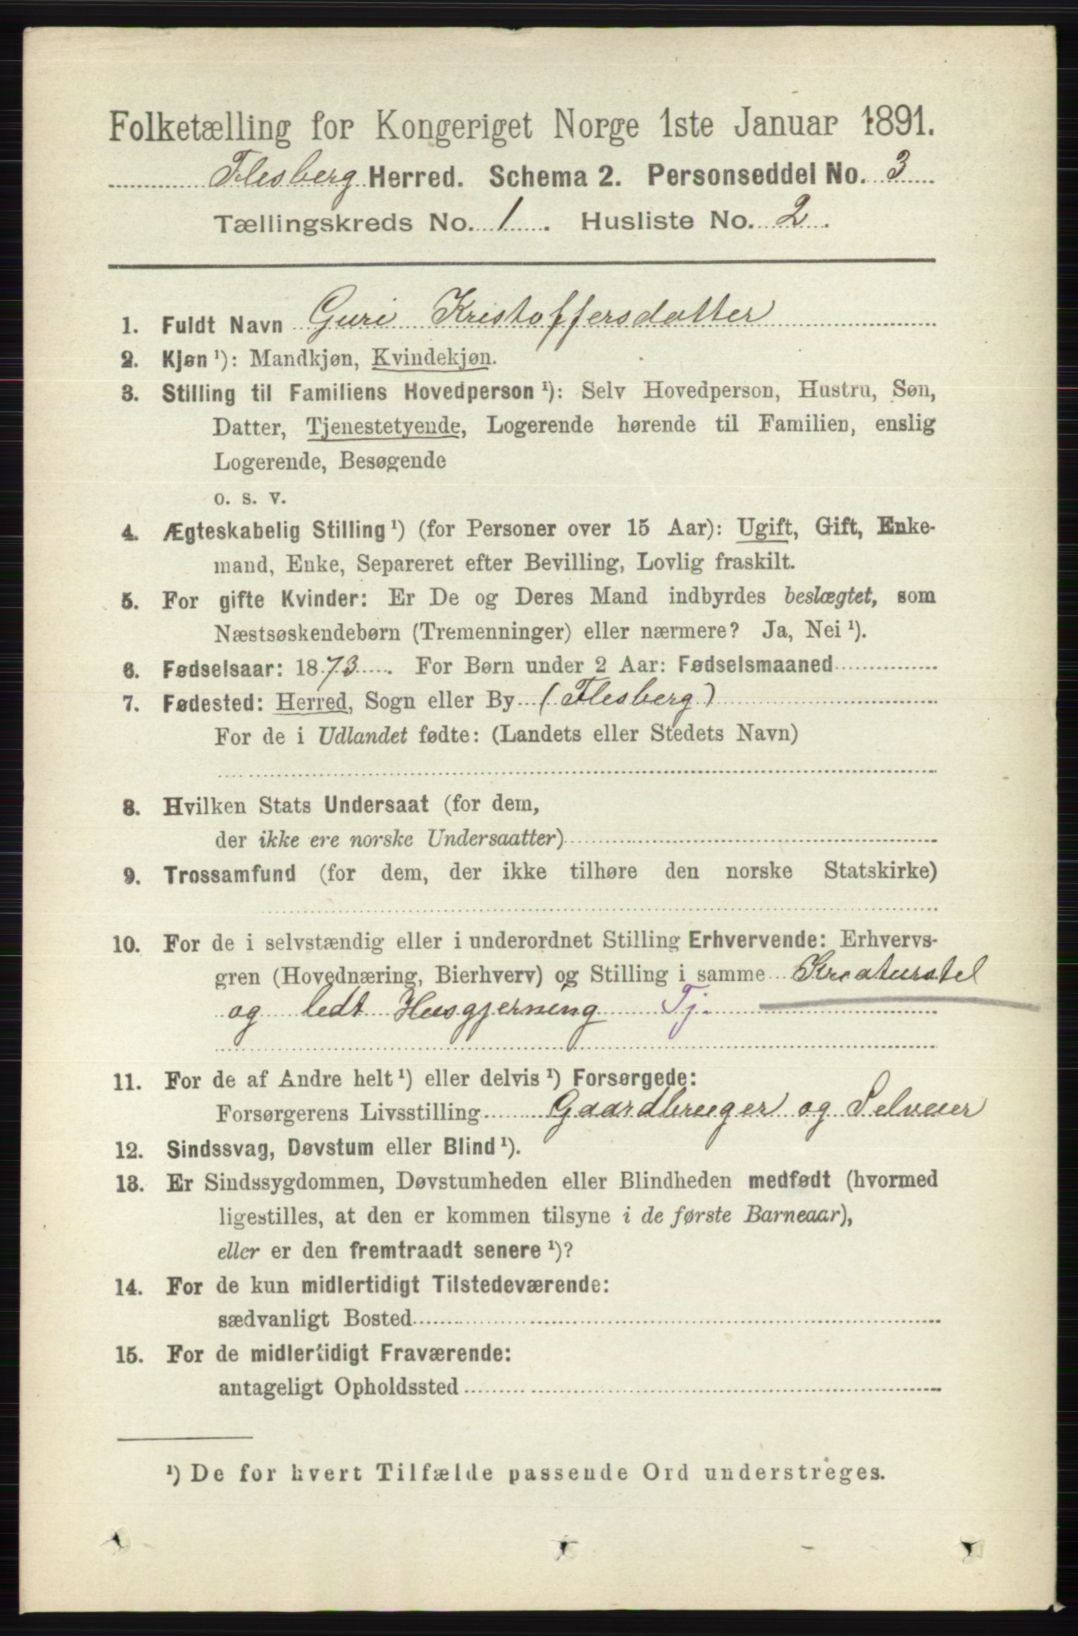 Folketælling for Kongeriget Norge 1ste Januar 1891.
Flesberg Herred. Schema 2. Personseddel No. 3
Tællingskreds No. 1. Husliste No. 2.
1. Fuldt Navn Guri Kristoffersdatter
2. Kjøn ¹): Mandkjøn, Kvindekjøn.
3. Stilling til Familiens Hovedperson ¹): Selv Hovedperson, Hustru, Søn,
Datter, Tjenestetyende, Logerende hørende til Familien, enslig
Logerende, Besøgende
o. s. v.
4. Ægteskabelig Stilling ¹) (for Personer over 15 Aar): Ugift, Gift, Enke-
mand, Enke, Separeret efter Bevilling, Lovlig fraskilt.
5. For gifte Kvinder: Er De og Deres Mand indbyrdes beslægtet, som
Næstsøskendebørn (Tremenninger) eller nærmere? Ja, Nei ¹).
6. Fødselsaar: 1873. For Børn under 2 Aar: Fødselsmaaned
7. Fødested: Herred, Sogn eller By (Flesberg)
For de i Udlandet fødte: (Landets eller Stedets Navn)
8. Hvilken Stats Undersaat (for dem,
der ikke ere norske Undersaatter)
9. Trossamfund (for dem, der ikke tilhøre den norske Statskirke)
10. For de i selvstændig eller i underordnet Stilling Erhvervende: Erhvervs-
gren (Hovednæring, Bierhverv) og Stilling i samme Kreaturstel
og ledt Husgjerning Tj.
11. For de af Andre helt ¹) eller delvis ¹) Forsørgede:
Forsørgerens Livsstilling Gaardbruger og Selveier
12. Sindssvag, Døvstum eller Blind ¹).
13. Er Sindssygdommen, Døvstumheden eller Blindheden medfødt (hvormed
ligestilles, at den er kommen tilsyne i de første Barneaar),
eller er den fremtraadt senere ¹)?
14. For de kun midlertidigt Tilstedeværende:
sædvanligt Bosted
15. For de midlertidigt Fraværende:
antageligt Opholdssted
¹) De for hvert Tilfælde passende Ord understreges.